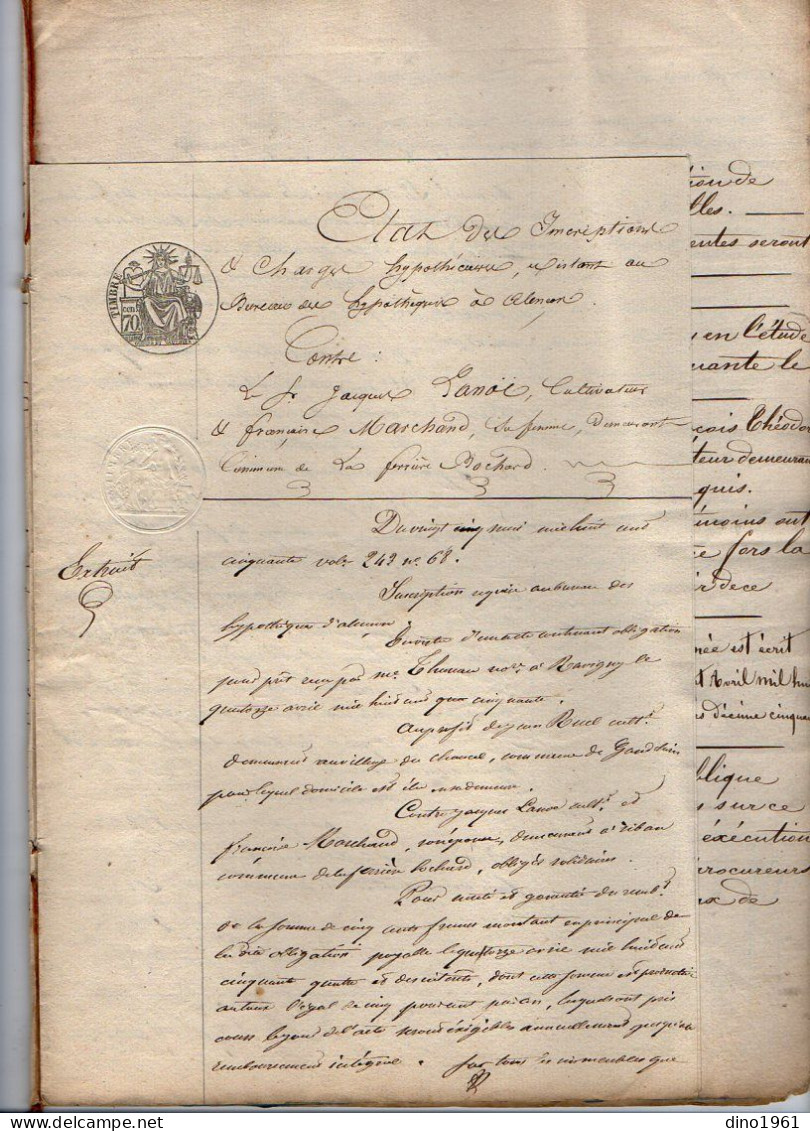 Etat des Inscriptions
& Charges hypothécaires, existant au
Bureau des hypothèques à Alençon.
Contre :
Le Sr Jacques Lanoë, Cultivateur
& françoise Marchand, sa femme, demeurant
Commune de La ferrière Bochard.
TIMBRE
70 cen
Extrait
Du vingt cinq mai mil huit cent
cinquante vol. 243 no. 68.
Inscription requise au bureau des
hypothèques d'alençon
En vertu d'un acte contenant obligation
pour prêt reçu par me. notre à Ravigny le
quatorze avril mil huit cent cinquante.
Au profit de jean cultr.
demeurant au village du commune de
pour lequel domicile est élu en sa demeure.
Contre jacques Lanoe cultr. et
françoise Marchand, son épouse, demeurant à
commune de la ferrière bochard, obligés solidaires.
Pour sureté et garantie du rembt.
de la somme de cinq cents francs montant en principal de
la dite obligation payable le quatorze avril mil huit cent
cinquante quatre et des intérêts, dont cette somme est productive
au taux légal de cinq pour cent par an, lesquels ont pris
cours le jour de l'acte seront exigibles annuellement jusqu'au
remboursement intégral. Sur tous les immeubles que
tion de
lles.
entes seront
en l'étude
uante le
çois Théodor
teur demeurant
quis.
témoins ont
fors la
ir de ce
née est écrit
t Avril mil hui
s décime cinquan
blique
s sur ce
exécution
rocureurs
de
dino1961